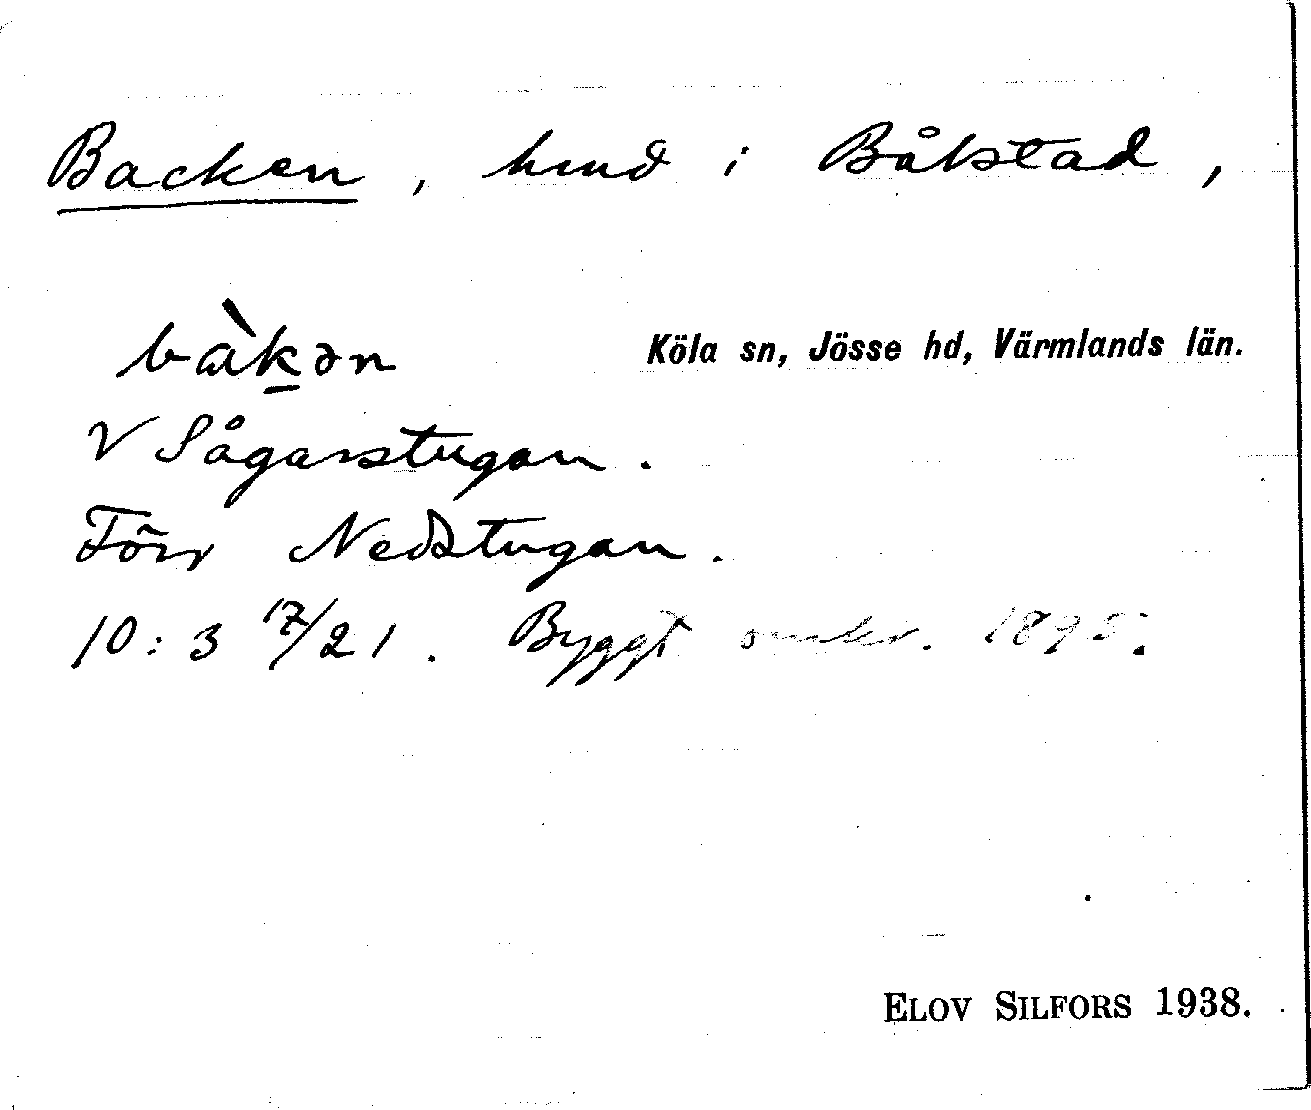 Backen, hmd i Bålstad,
bàkən
Köla sn, Jösse hd, Värmlands län.
V Sågarstugan.
Förr Nedstugan.
10:3 17/21. Byggt omkr. 1895.
ELOV SILFORS 1938.